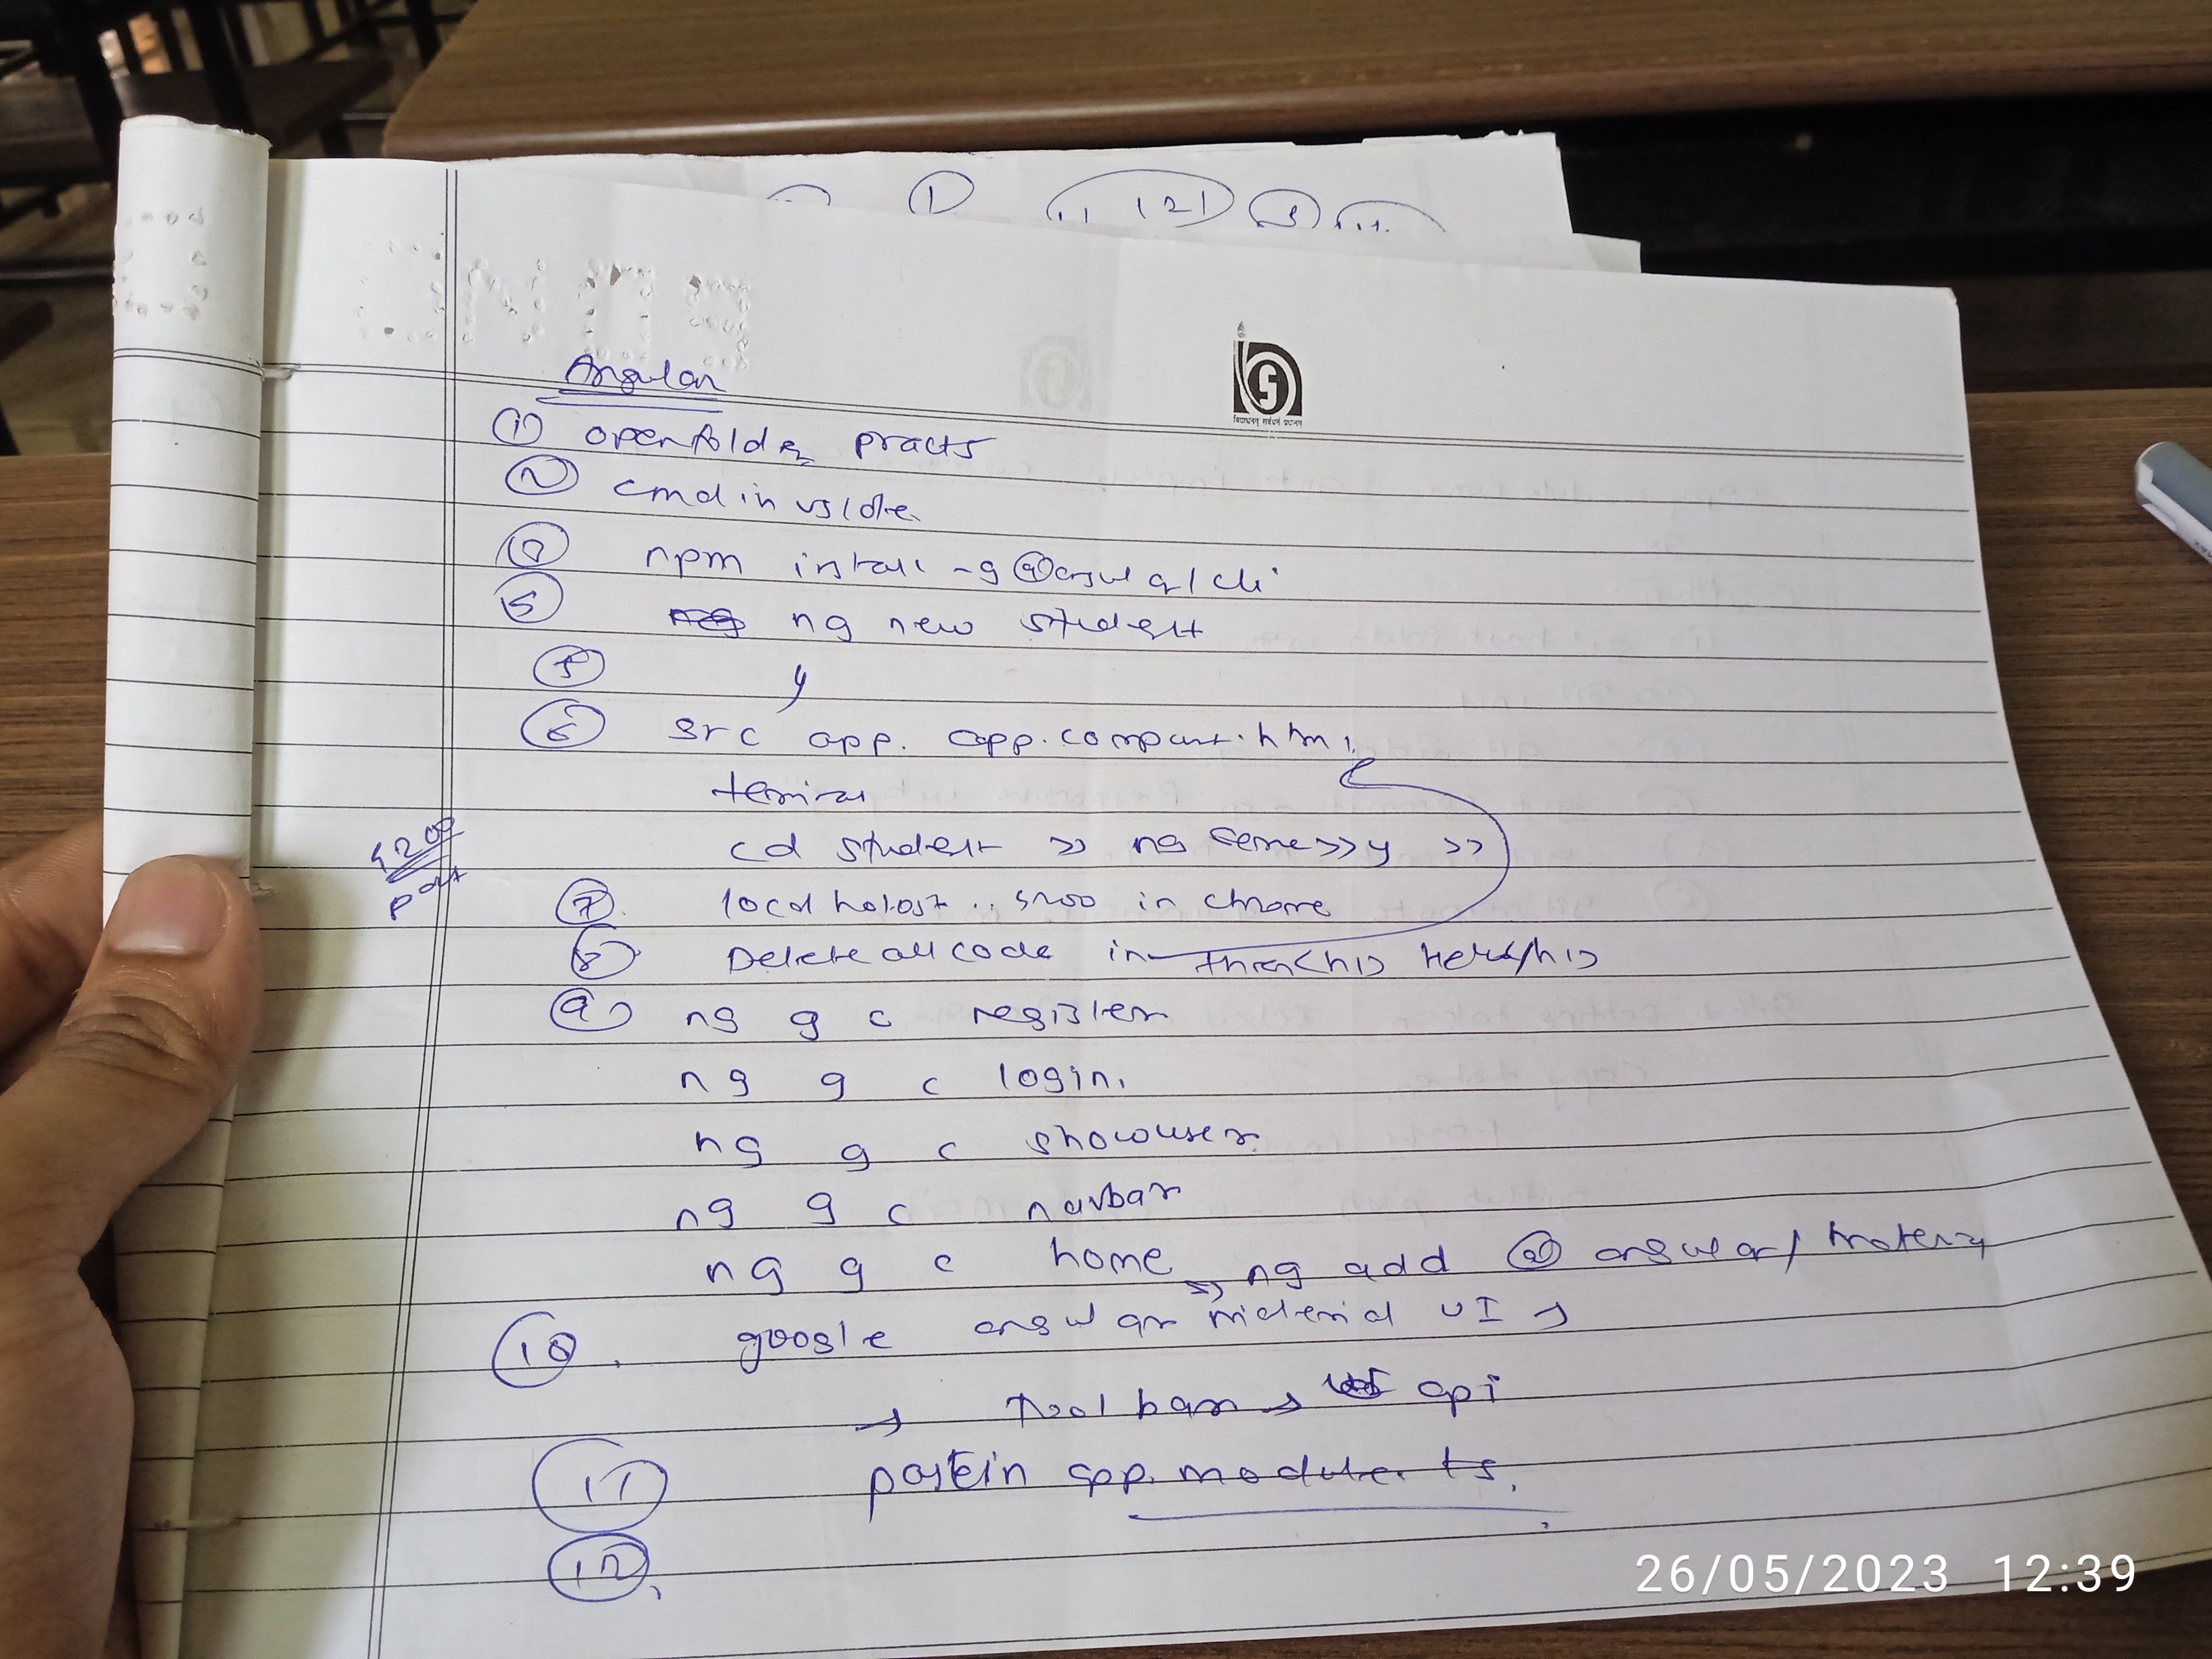 1 121 3
Angular
① open folder practs
② cmd in vs code
③ npm install -g @angular/cli
⑤ ng new student
⑤ y
⑥ src app. app.component.html
terminal
cd student >> ng serve >> y >>
4200 port
⑦. localhost : 4200 in chrome
⑧ Delete all code in then <h1> Hello </h1>
⑨ ng g c register
ng g c login.
ng g c showuser
ng g c navbar
ng g c home >> ng add @ angular/material
⑩. google angular material UI →
→ Tool bar → api
⑪ paste in app.module.ts.
⑫.
26/05/2023 12:39